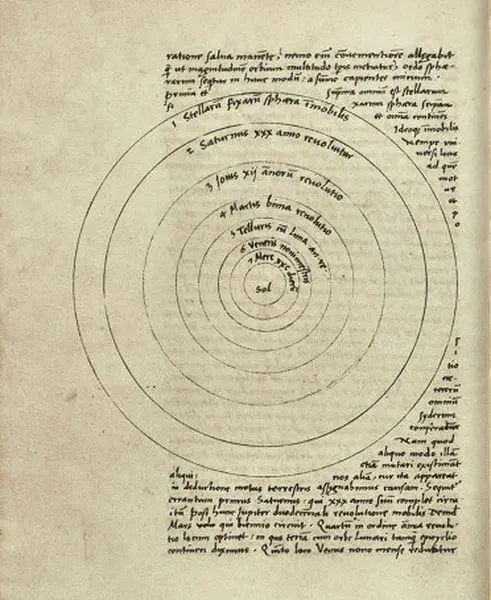 ratione salva manente, nemo em̃ convenientiorẽ allegabit
q̃ ut magnitudinẽ orbium multitudo tꝑis metiatur, ordo sphæ-
rarum sequitur in hunc modũ: a sum̃o capientes initium.
prima et suprema omniũ est stellarum
fixarum sphæra seipsam
et omnia continẽs
Ideoqꝫ immobilis
nempe uni-
versi locus
ad quẽ
mot
us
et
p
o
1 Stellarũ fixarũ sphæra ĩmobilis
2 Saturnus xxx anno revolvitur
3 Jovis xij annorũ revolutio
4 Martis bima revolutio
5 Telluris cũ Luna an. re.
6 Veneris nonimestris
7 Merc. xxc dierũ
Sol
tio
ce-
terorũ
omniũ
syderum
conferatur
Nam quod
aliquo modo illã
etiã mutari existimãt
aliqui: nos aliã, cur ita appareat
in deductione motus terrestris assignabimus causam. Sequit̃
errantium primus Saturnus: qui xxx anno suũ complet circu-
itũ. Post hunc Jupiter duodecẽnali revolutione mobilis. Deinde
Mars qui biennio circuit. Quartũ in ordine annua revolu-
tio locum optinet: in quo terra cum orbe lunari tamqꝫ epicyclo
contineri diximus. Quĩto loco Venus nono mense reducitur